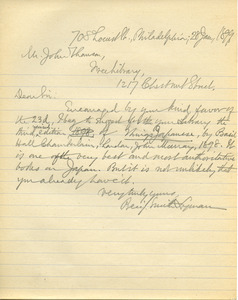 708 Locust St., Philadelphia, 28 Jan., 1899
Mr. John Thomson,
Free Library,
1217 Chestnut Street,
Dear Sir:
Encouraged by your kind favor of
the 23d, I beg to suggest for the Library the
third edition of Things Japanese, by Basil
Hall Chamberlain, London, John Murray, 1898. It
is one of the very best and most authoritative
books on Japan. But it is not unlikely that
you already have it.
Very truly yours,
Benj. Smith Lyman